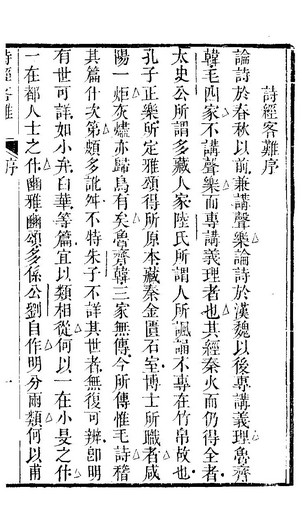 詩經客難序
論詩於春秋以前兼講聲樂論詩於漢魏以後專講義理魯齊
韓毛四家不講聲樂而專講義理者也其經秦火而仍得全者
太史公所謂多藏人家陸氏所謂人所諷誦不專在竹帛故也
孔子正樂所定雅頌得所原本藏秦金匱石室博士所職者咸
陽一炬灰燼亦歸烏有矣魯齊韓三家無傳今所傳惟毛詩稽
其篇什次第頗多訛舛不特朱子不詳其世者無復可辨卽明
有世可詳如小弁白華等篇宜以類相從何以一在小旻之什
一在都人士之什豳雅豳頌多係公劉自作明分兩類何以甫
詩經客難
序
一